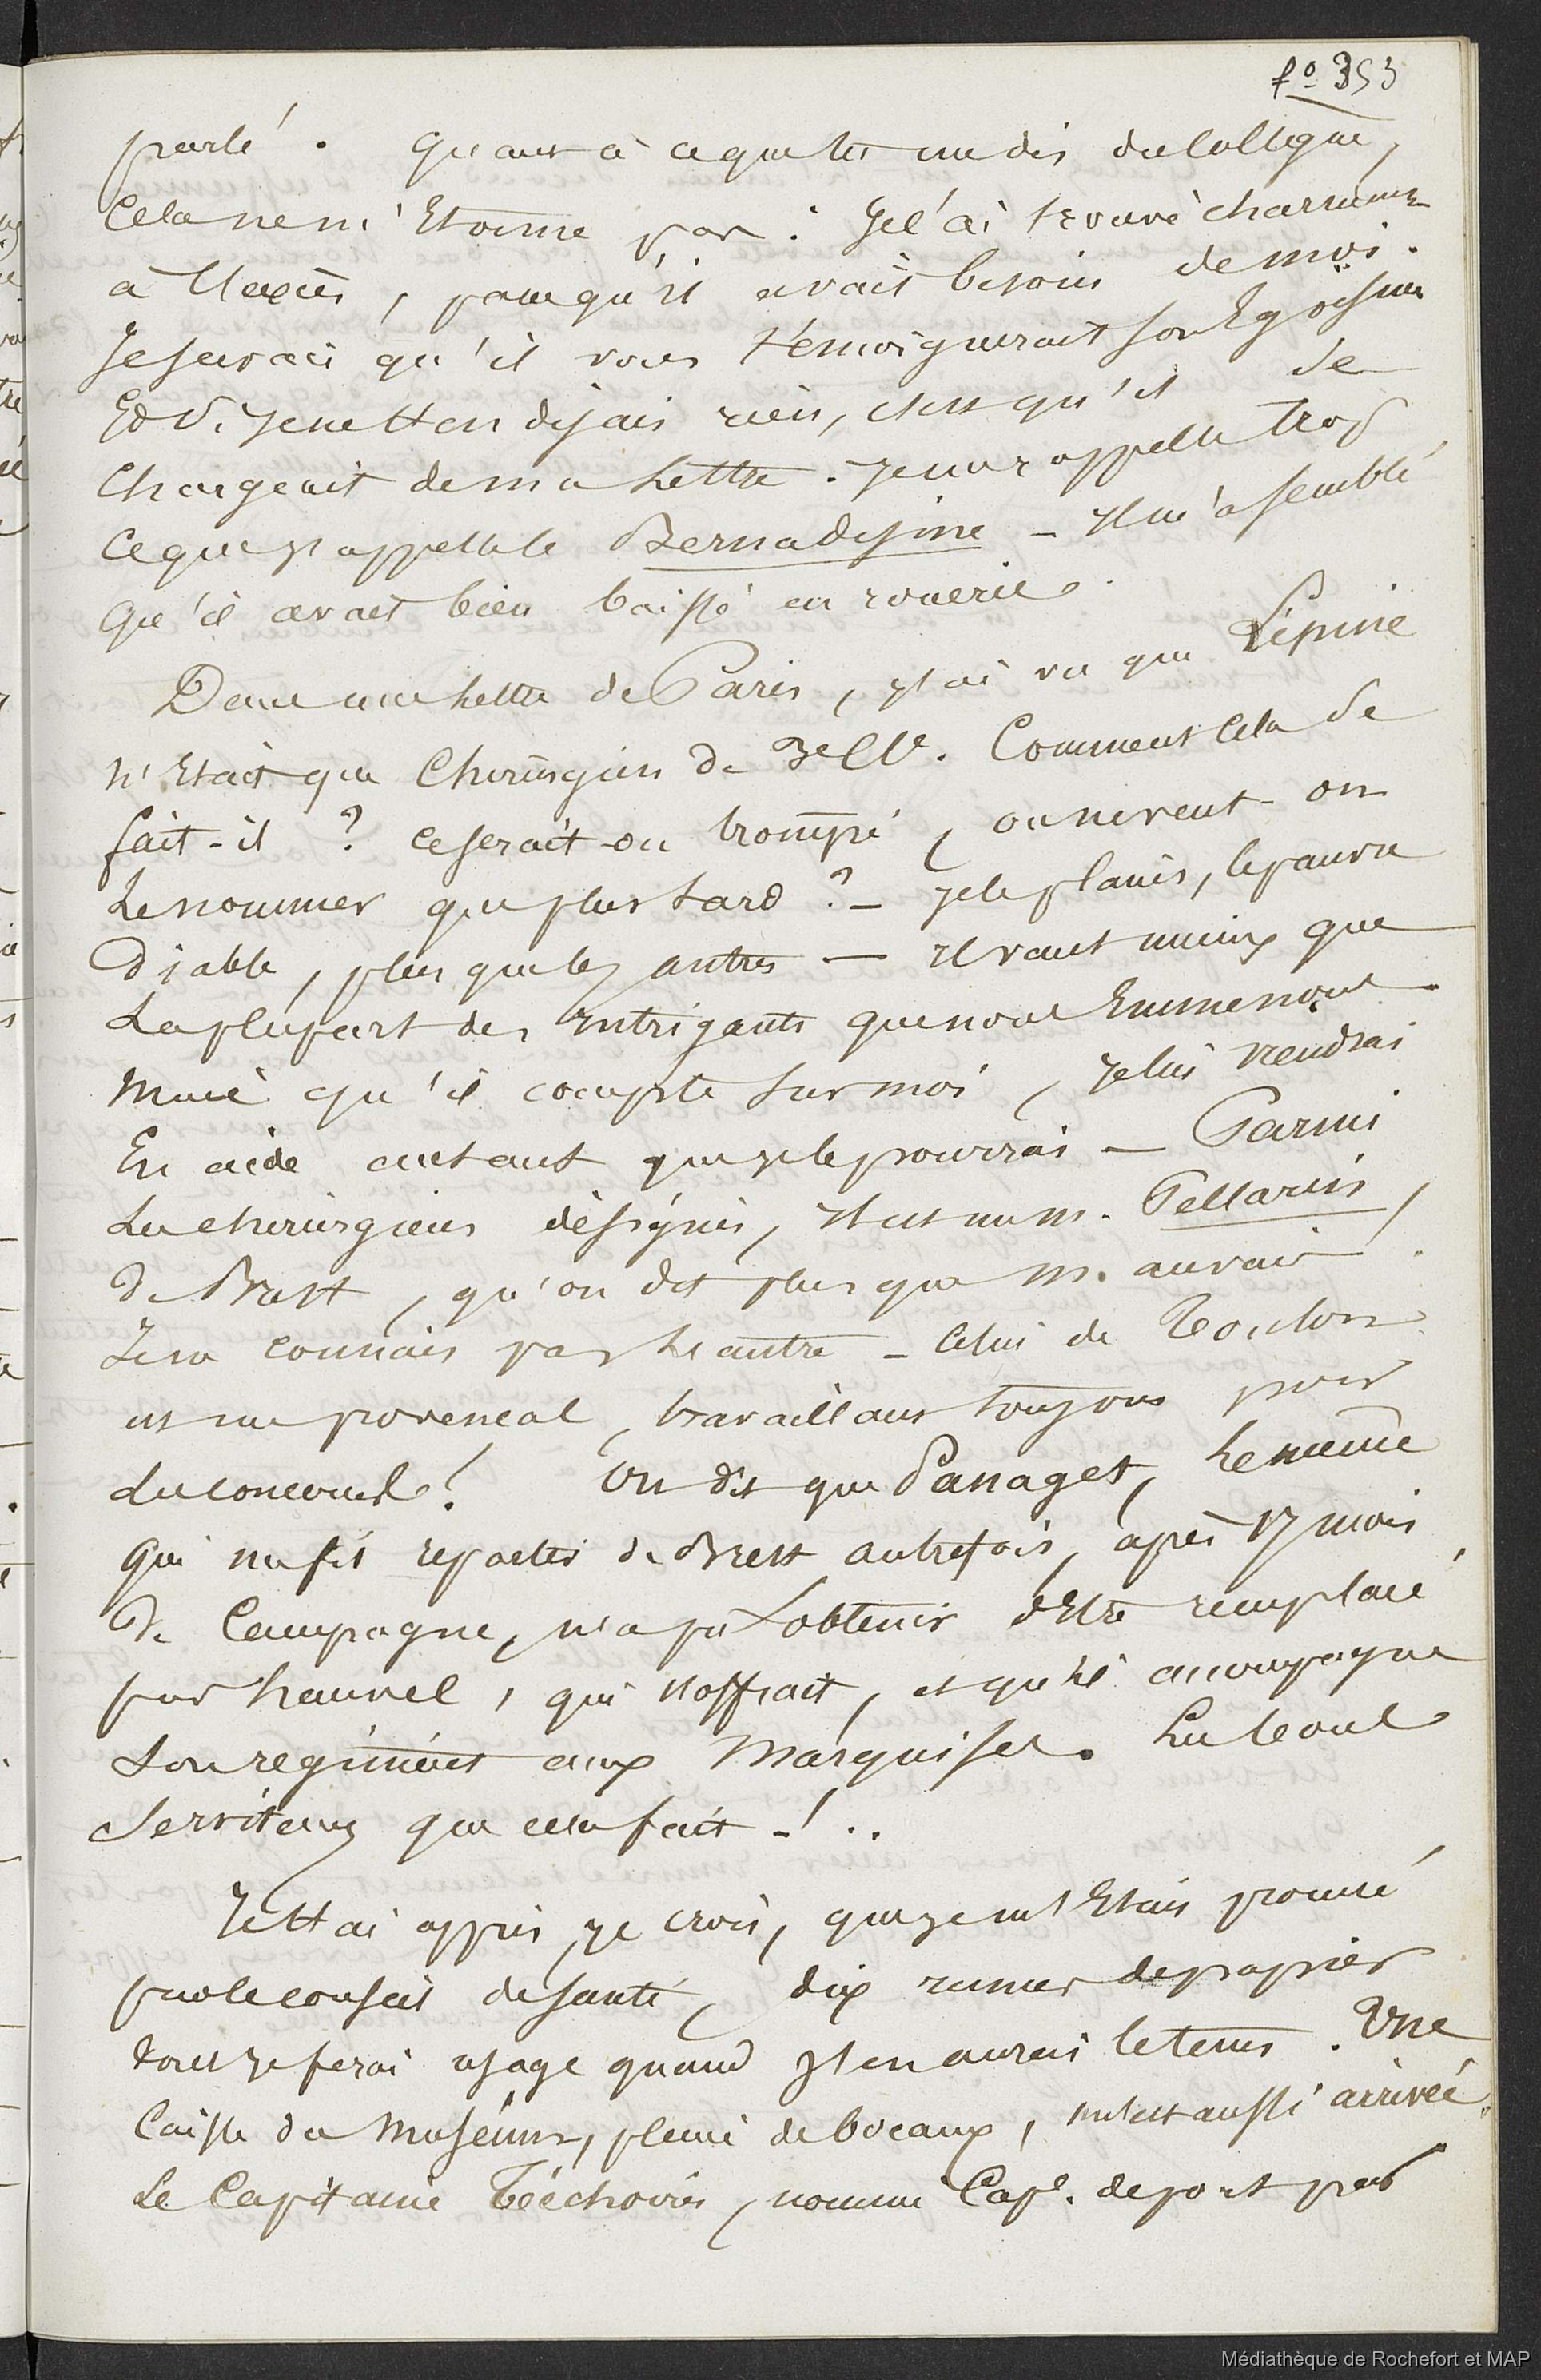 fo 353
parlé. Quant à ce que tu me dis du Collègue,
Cela ne m'Etonne pas : Je l'ai trouvé charmant
à , parcequ'il avait besoin de moi.
Je savais qu'il vous témoignerait son Egoïsme
Et si je ne t'en disais rien, c'est qu'il se
Chargeait de ma lettre. Je me rappelle trop
Ce que j'appelle le Bernadisme - Il m'a semblé
Qu'il avait bien baissé en rouerie.
Dans une lettre de Paris, j'ai vu que Lépine
n'Etait que Chirurgien de 3e Cl.e Comment Cela se
fait-il ? Se serait-on trompé, ou ne veut-on
le nommer que plus tard ? - Je le plains, le pauvre
Diable, plus que les autres — il vaut mieux que
La plupart des intrigants que nous Emmenons
Mais qu'il compte sur moi, je lui viendrai
En aide autant que je le pourrai — Parmi
Les chirurgiens désignés, il est un M. Pellarin,
de Brest, qu'on dit plus que M. auvair !
Je ne connais pas les autres - Celui de Toulon
est un provencal, travaillant toujours pour
les concours ! On dit que Panaget, le même
Qui me fit repartir de Brest autrefois, après 17 mois
de Campagne, n'a pu obtenir d'Etre remplacé
par hamel, qui s'offrait, et qu'il accompagne
Son régiment aux Marquises. Les bons
Serviteurs que cela fait - ! ..
Je t'ai appris, je crois, que je m'Etais procuré
par le conseil de santé, dix rames de papier
dont je ferai usage quand j'en aurai le tems. Une
Caisse du Muséum, pleine de bocaux, m'est aussi arrivée.
Le Capitaine Bééchovin, nommé Cap.e de port par
Médiathèque de Rochefort et MAP